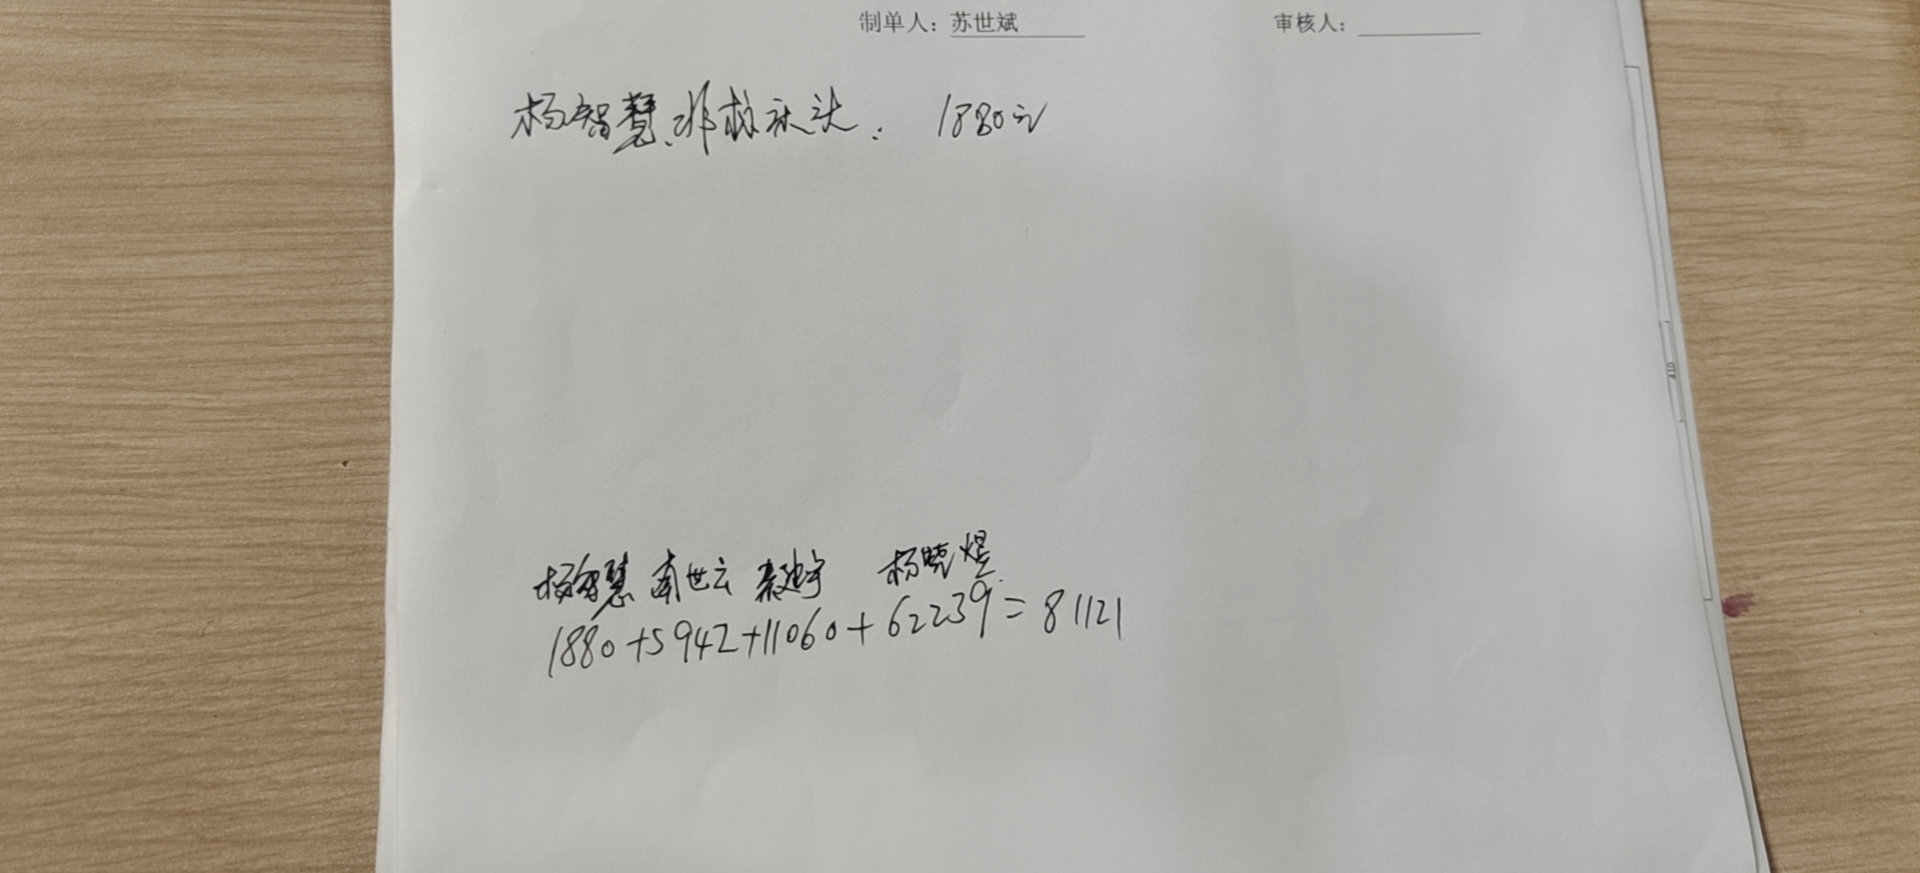 制单人：苏世斌 审核人：
杨智慧、非核求决： 1880元
杨智慧 南世云 秦建宇 杨晓煜
1880+5942+11060+62239=81121